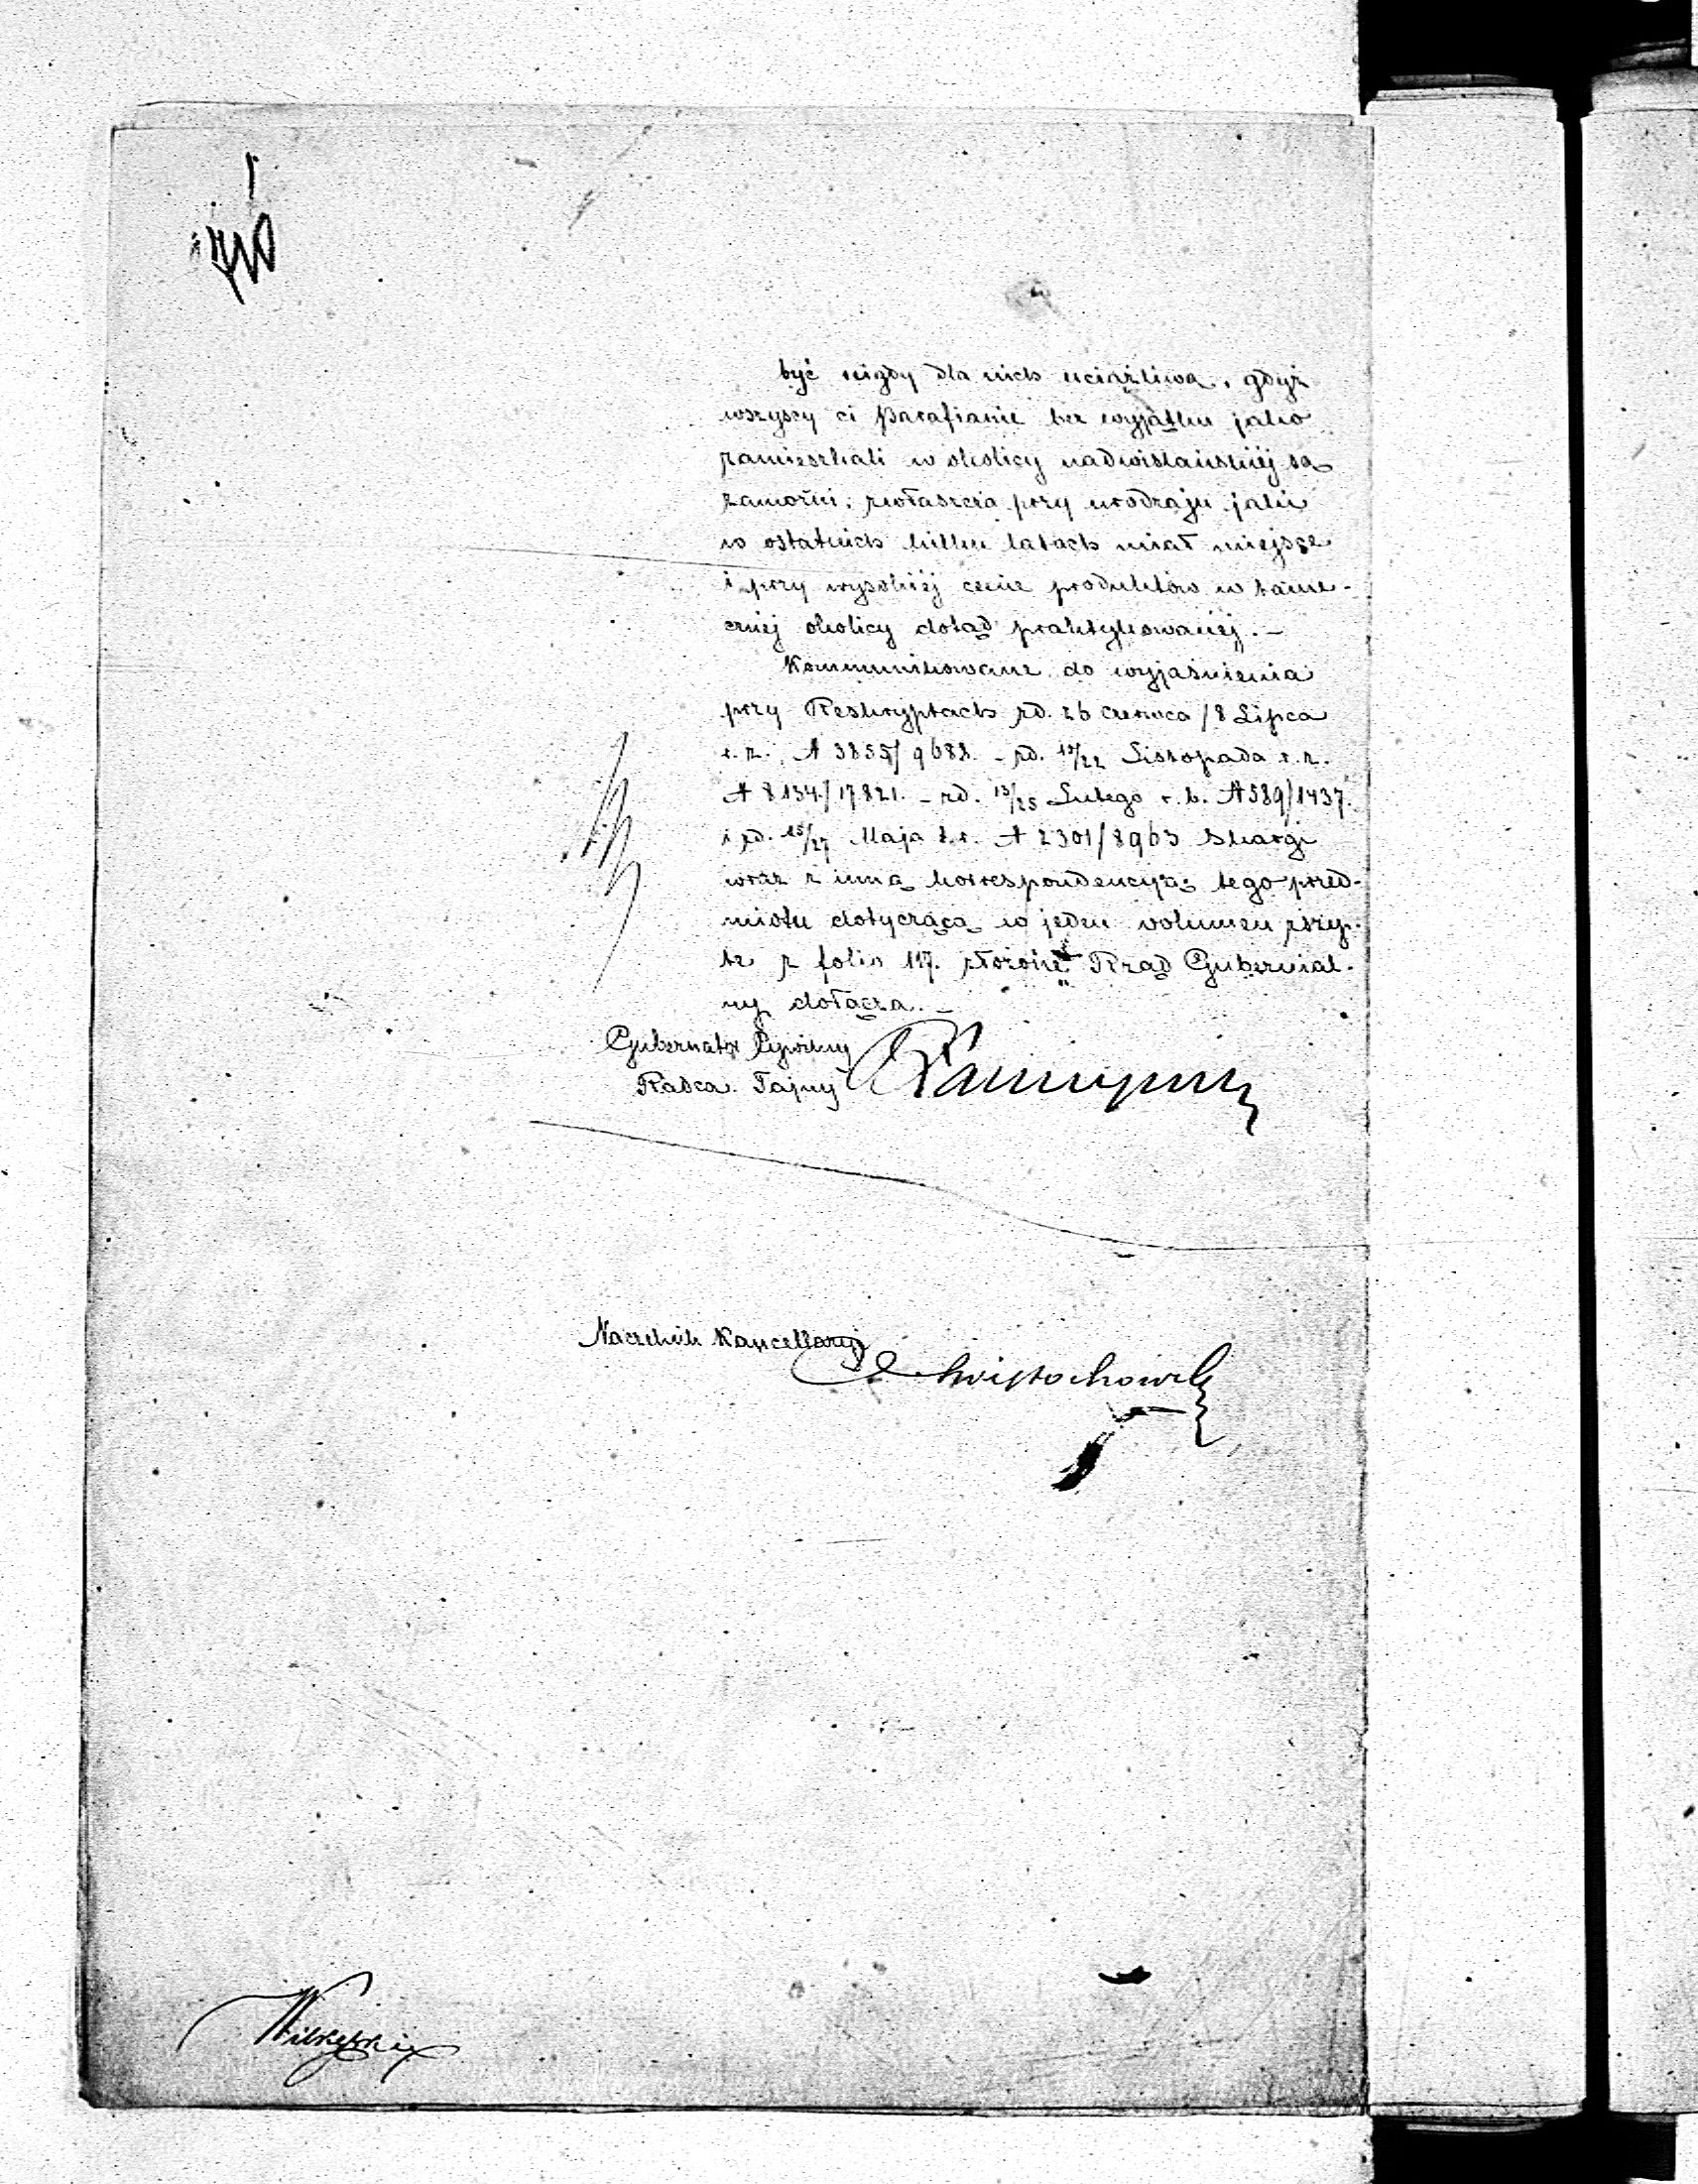 być nigdy dla nich uciążliwa, gdyż
wszyscy ci Parafianie bez wyjątku jako
zamieszkali w okolicy nadwiślańskiej są
zamożni, zwłaszcza przy urodzaju jaki
w ostatnich kilku latach miał miejsce
i przy wysokiéj cenie produktów w tame-
cznéj okolicy dotąd praktykowanéj. –
Kommunikowane do wyjaśnienia
przy Reskryptach zd. 26 Czerwca / 8 Lipca
r. z. N 3855/9688. – zd. 10/22 Listopada r. z.
N 8134./17821. – zd. 13/25 Lutego r. b. N 589/1437.
i zd. 15/27 Maja t. r. N 2301/8963 skargi
wraz z inną korrespondencyą tego przed-
miotu dotyczącą w jeden volumen zszy-
te z folio 117. złożone Rząd Gubernial-
ny dołącza. –
Gubernator Cywilny
Radca Tajny
Naczelnik Kancellaryi